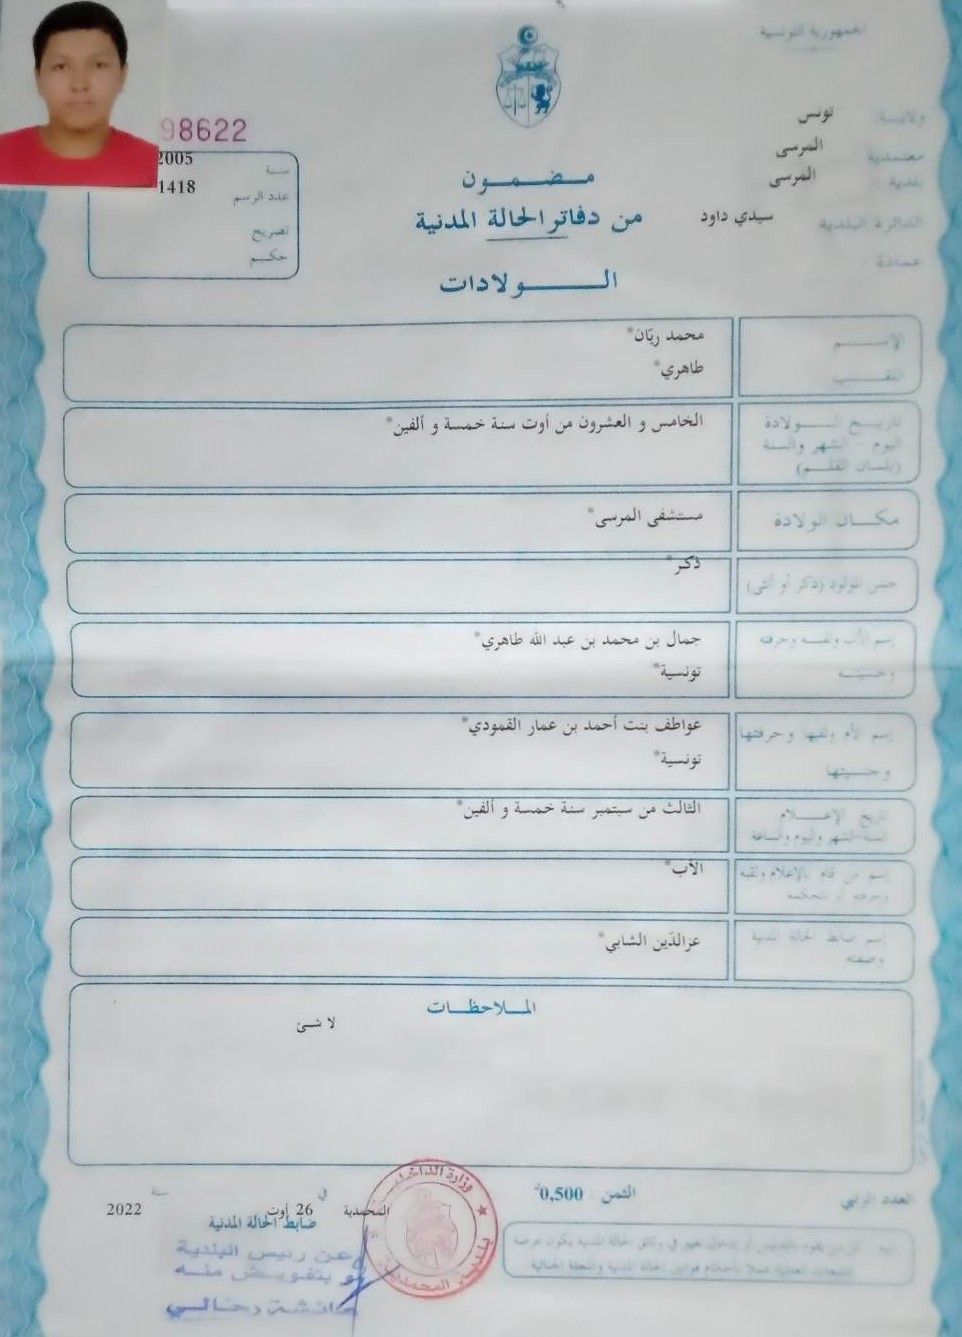 الجمهورية التونسية
ولاية: تونس
معتمدية المرسى
بلدية : المرسى
الدائرة البلدية سيدي داود
عمادة :
98622
سنة 2005
عدد الرسم 1418
تصريح
حكم
مضمون
من دفاتر الحالة المدنية
الولادات
الإسم محمد ريّان*
اللقب طاهري*
تاريخ الولادة الخامس و العشرون من أوت سنة خمسة و ألفين*
اليوم - الشهر والسنة
(بلسان القلم)
مكان الولادة مستشفى المرسى*
جنس المولود (ذكر أو أنثى) ذكر*
إسم الأب ولقبه وحرفته جمال بن محمد بن عبد الله طاهري*
وجنسيته تونسية*
إسم الأم ولقبها وحرفتها عواطف بنت أحمد بن عمار القمودي*
وجنسيتها تونسية*
تاريخ الإعلام الثالث من سبتمبر سنة خمسة و ألفين*
السنة الشهر واليوم والساعة
إسم من قام بالإعلام ولقبه الأب*
وحرفته أو المحكمة
إسم ضابط الحالة المدنية عزالدّين الشابي*
وصفته
الملاحظات
لا شئ
العدد الرتبي
الثمن : 0,500د
المحمدية في 26 أوت سنة 2022
ضابط الحالة المدنية
وعن رئيس البلدية
و بتفويض منه
عائشة رحالي
وزارة الداخلية
بلدية المحمدية